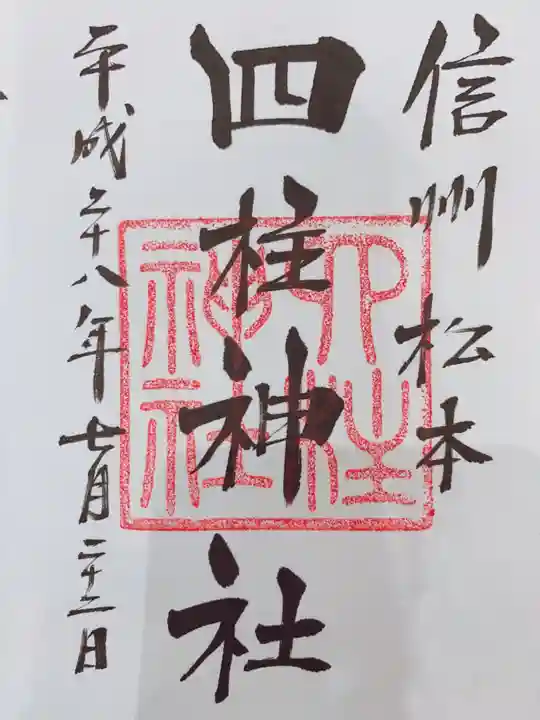 信州 松本
四柱神社
平成二十八年七月二十二日
四柱
神社